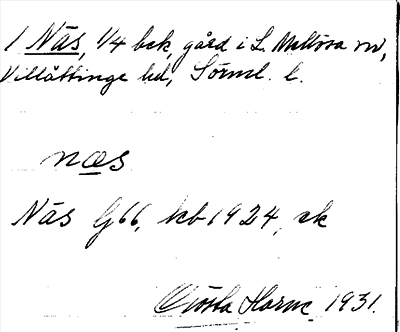 1 Näs, 1/4 bck, gård i L. Mellösa sn,
Villåttinge hd, Sörml. l.
næs
Näs G66, kb 1924, ek
Gösta Harne 1931.